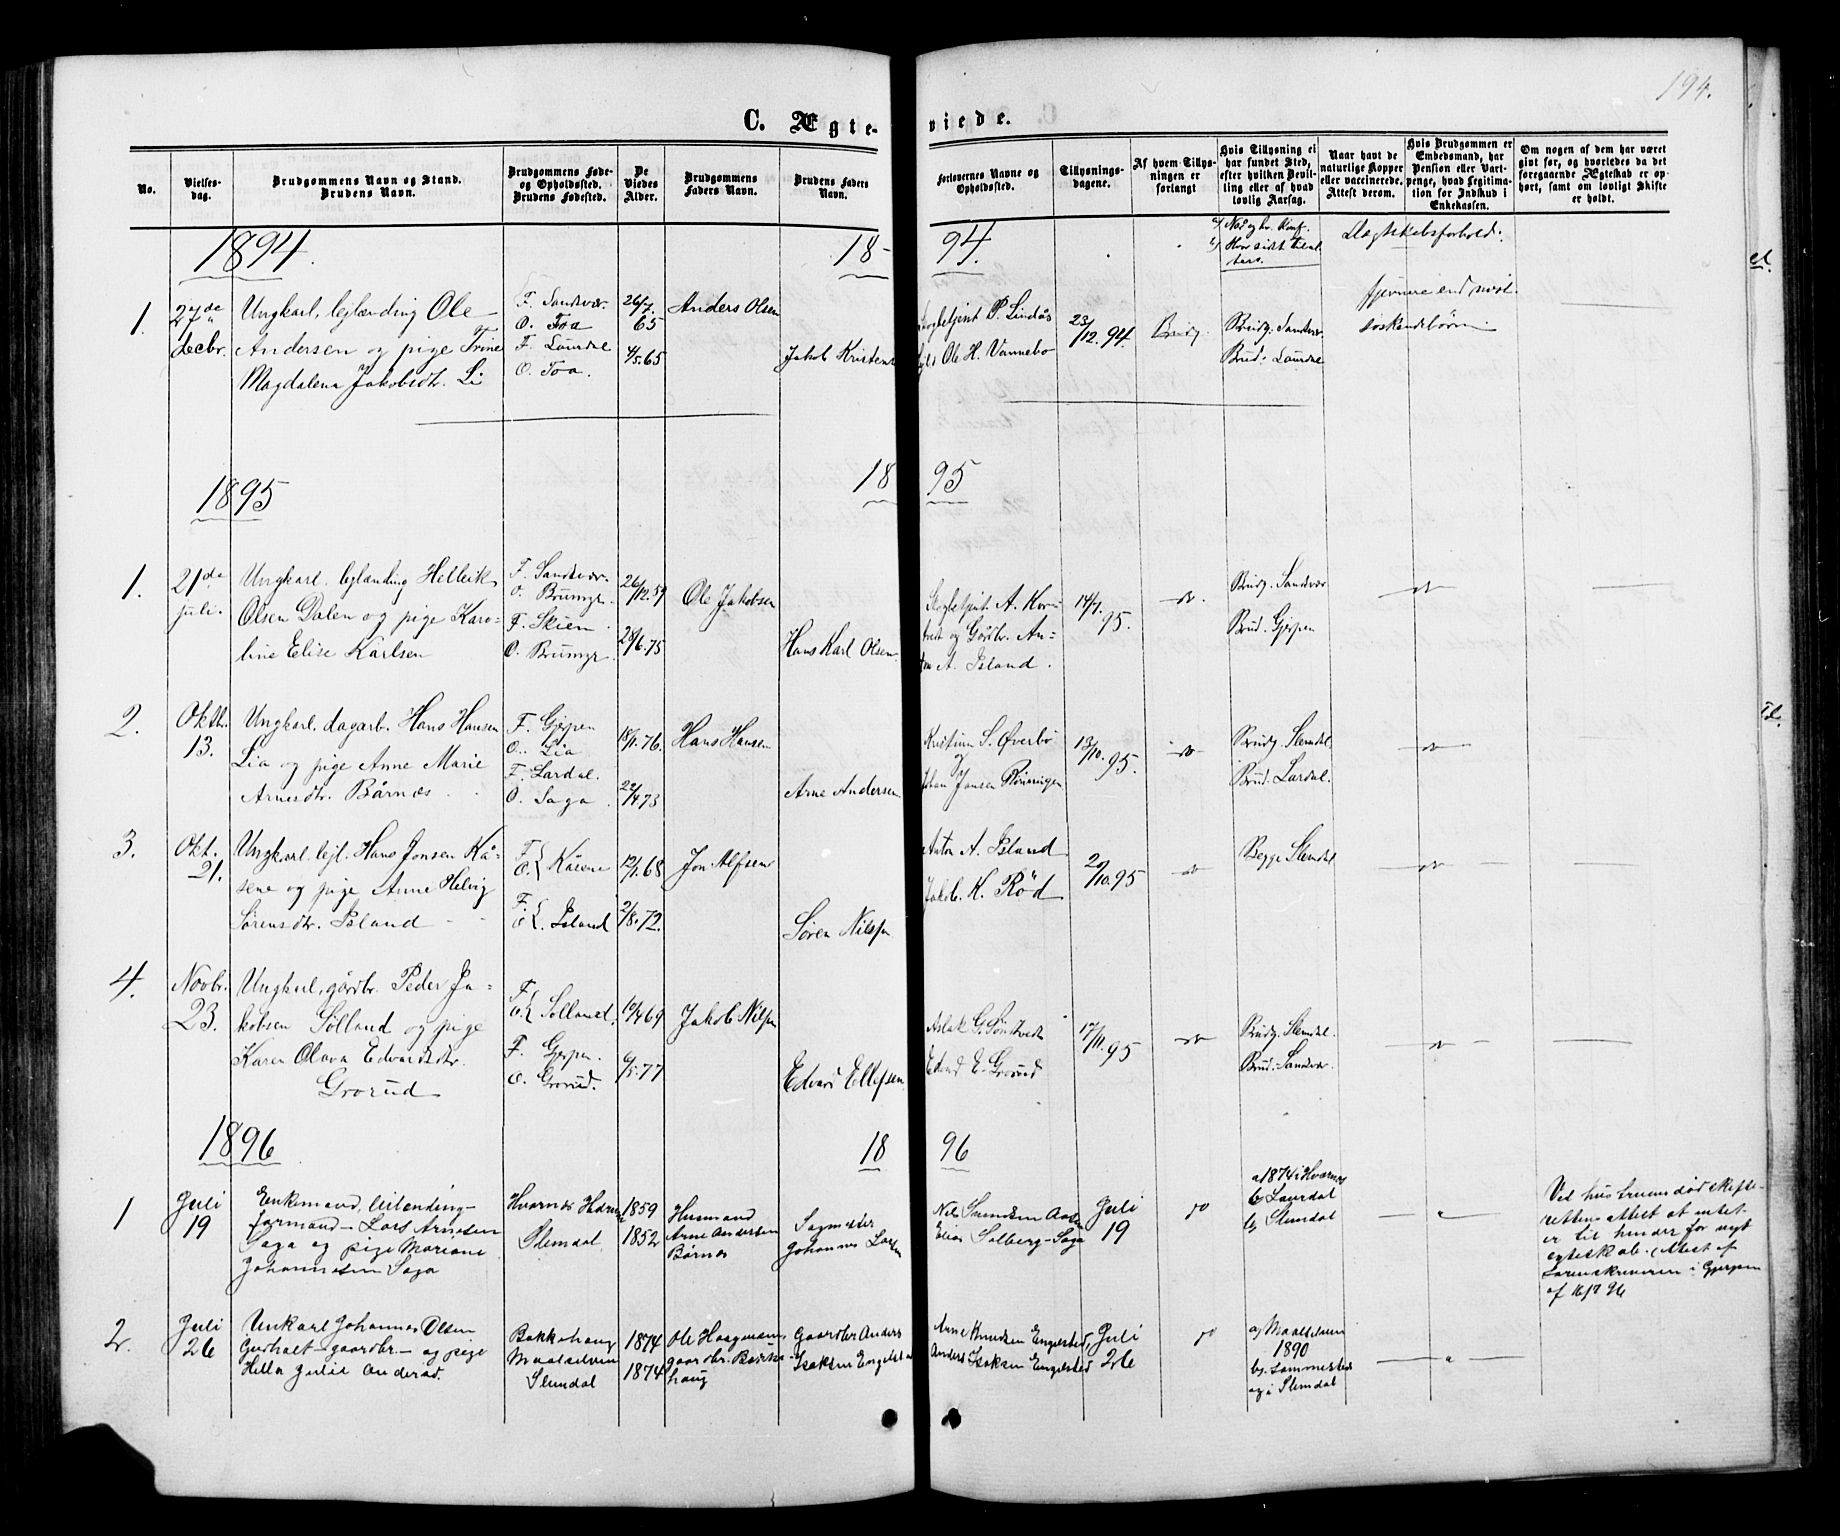 194.
C. Ægte- viede.
No.
Vielses-
dag.
Brudgommens Navn og Stand.
Brudens Navn.
Brudgommens Føde-
og Opholdssted.
Brudens Fødested.
De
Viedes
Alder.
Brudgommens
Faders Navn.
Brudens Faders
Navn.
Forlovernes Navne og
Opholdssted.
Tillysnings-
dagene.
Af hvem Tillys-
ningen er
forlangt
Hvis Tillysning ei
har fundet Sted,
efter hvilken Bevil-
ling eller af hvad
lovlig Aarsag.
Naar havt de
naturlige Kopper
eller vaccinerede.
Attest derom.
Hvis Brudgommen er
Embedsmand, har
Pension eller Vart-
penge, hvad Legitima-
tion for Indskud i
Enkekassen.
Om nogen af dem har været
givt før, og hvorledes da det
foregaaende Ægteskab er op-
hørt, samt om lovligt Skifte
er holdt.
1894. 18- 94.
Slægtskabsforhold:
1.
27de
decbr.
Ungkarl, lejlænding Ole
Andersen og pige Trine
Magdalena Jakobsdtr. Li
F. Sandsvær.
O. Foa
F. Laurdal
O. Foa.
26/7.
65
4/5.65
Anders Olsen
Jakob Kristens
P. Lindås
Ole H. Vannebo
23/12.94.
Brudg.
Brudg. Sandsvær
Brud: Laurdal
fjernere end
søskendebørn
1895 18 95
1.
21de
juli.
Ungkarl. lejlænding Hellek
Olsen Dalen og pige Karo-
line Elise Karlsen
F. Sandsvær.
O. Brumyr.
F. Skien
O. Brumyr.
26/12.59
28/6.75
Ole Jakobsen
Hans Karl Olsen
A. Kor-
og Gårdbr. An-
ton A. Island.
14/7.95.
Brudg. Sandsvær
Brud. Gjerpen
2.
Oktbr.
13.
Ungkarl. dagarb. Hans Hansen
Lia og pige Anne Marie
Arnesdtr. Bårnes
F. Gjerpen
O. Lia
F. Lardal.
O. Saga.
18/1.76.
22/4.73
Hans Hansen
Arne Andersen
Kristian S. Øverbø
og
Johan Jansen Rønningen
13/10.95.
Brudg. Slemdal.
Brud. Lardal.
3.
Okt.
21.
Ungkarl. lejl. Hans Jonsen Kå-
sene og pige Anne Helvig
Sørensdtr. Island
F.
O. Kåsene
F.
O. Island
12/1.68
2/8.72.
Jon Alfsen
Søren Nilsen
Anton A. Island
Jakob. K. Rød
2/10.95
Begge Slemdal
4.
Novbr.
23.
Ungkarl, gårdbr. Peder Ja-
kobsen Sølland og pige
Karen Olava Edvardsdtr.
Grorud
F.
O. Sølland.
F. Gjerpen.
O. Grorud.
10/4.69
6/5.77
Jakob Nilsen
Edvard Ellefsen
Aslak G. Sønstvedt
Edvard E. Grorud
17/11.95
Brudg. Slemdal.
Brud. Sandsvær.
1896 18 96
1
Juli
19
Enkemand, leilending-
formand- Lars Arnesen
Saga og pige Mariane
Johannesen Saga
Hvarnes Hedrum
Slemdal
1859
1852
Husmand
Arne Andersen
Børnes
Sagmester
Johannes Larsen
Nils Svendsen Aasen
Elias Solberg-Saga
Juli
19
do
a 1874 i Hvarnes
b, Laurdal
b, Slemdal
Ved hustruens død skifte-
rettens attest at intet
er til hinder for nyt
egteskab. (Attest af
Sorenskriveren i Gjerpen
af 16/7 96
2.
Juli
26
Unkarl Johannes Olsen
-gaardbr- og pige
Hella Julie Andersd.
Bakkehaug
Maalselven
Slemdal
1874
1874
Ole Haagensen,
gaardbr. Bakke-
haug
Gaardbr Anders
Isaksen Engelstad
Arne Knudsen Engelsted,
Anders Isaksen Engelsted
Juli
26
do
a, Maalselven
1890
b,
og i Slemdal